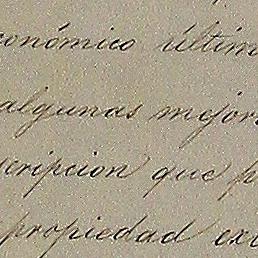 conómico últim
algunas mejor
cripcion que p
propiedad exc